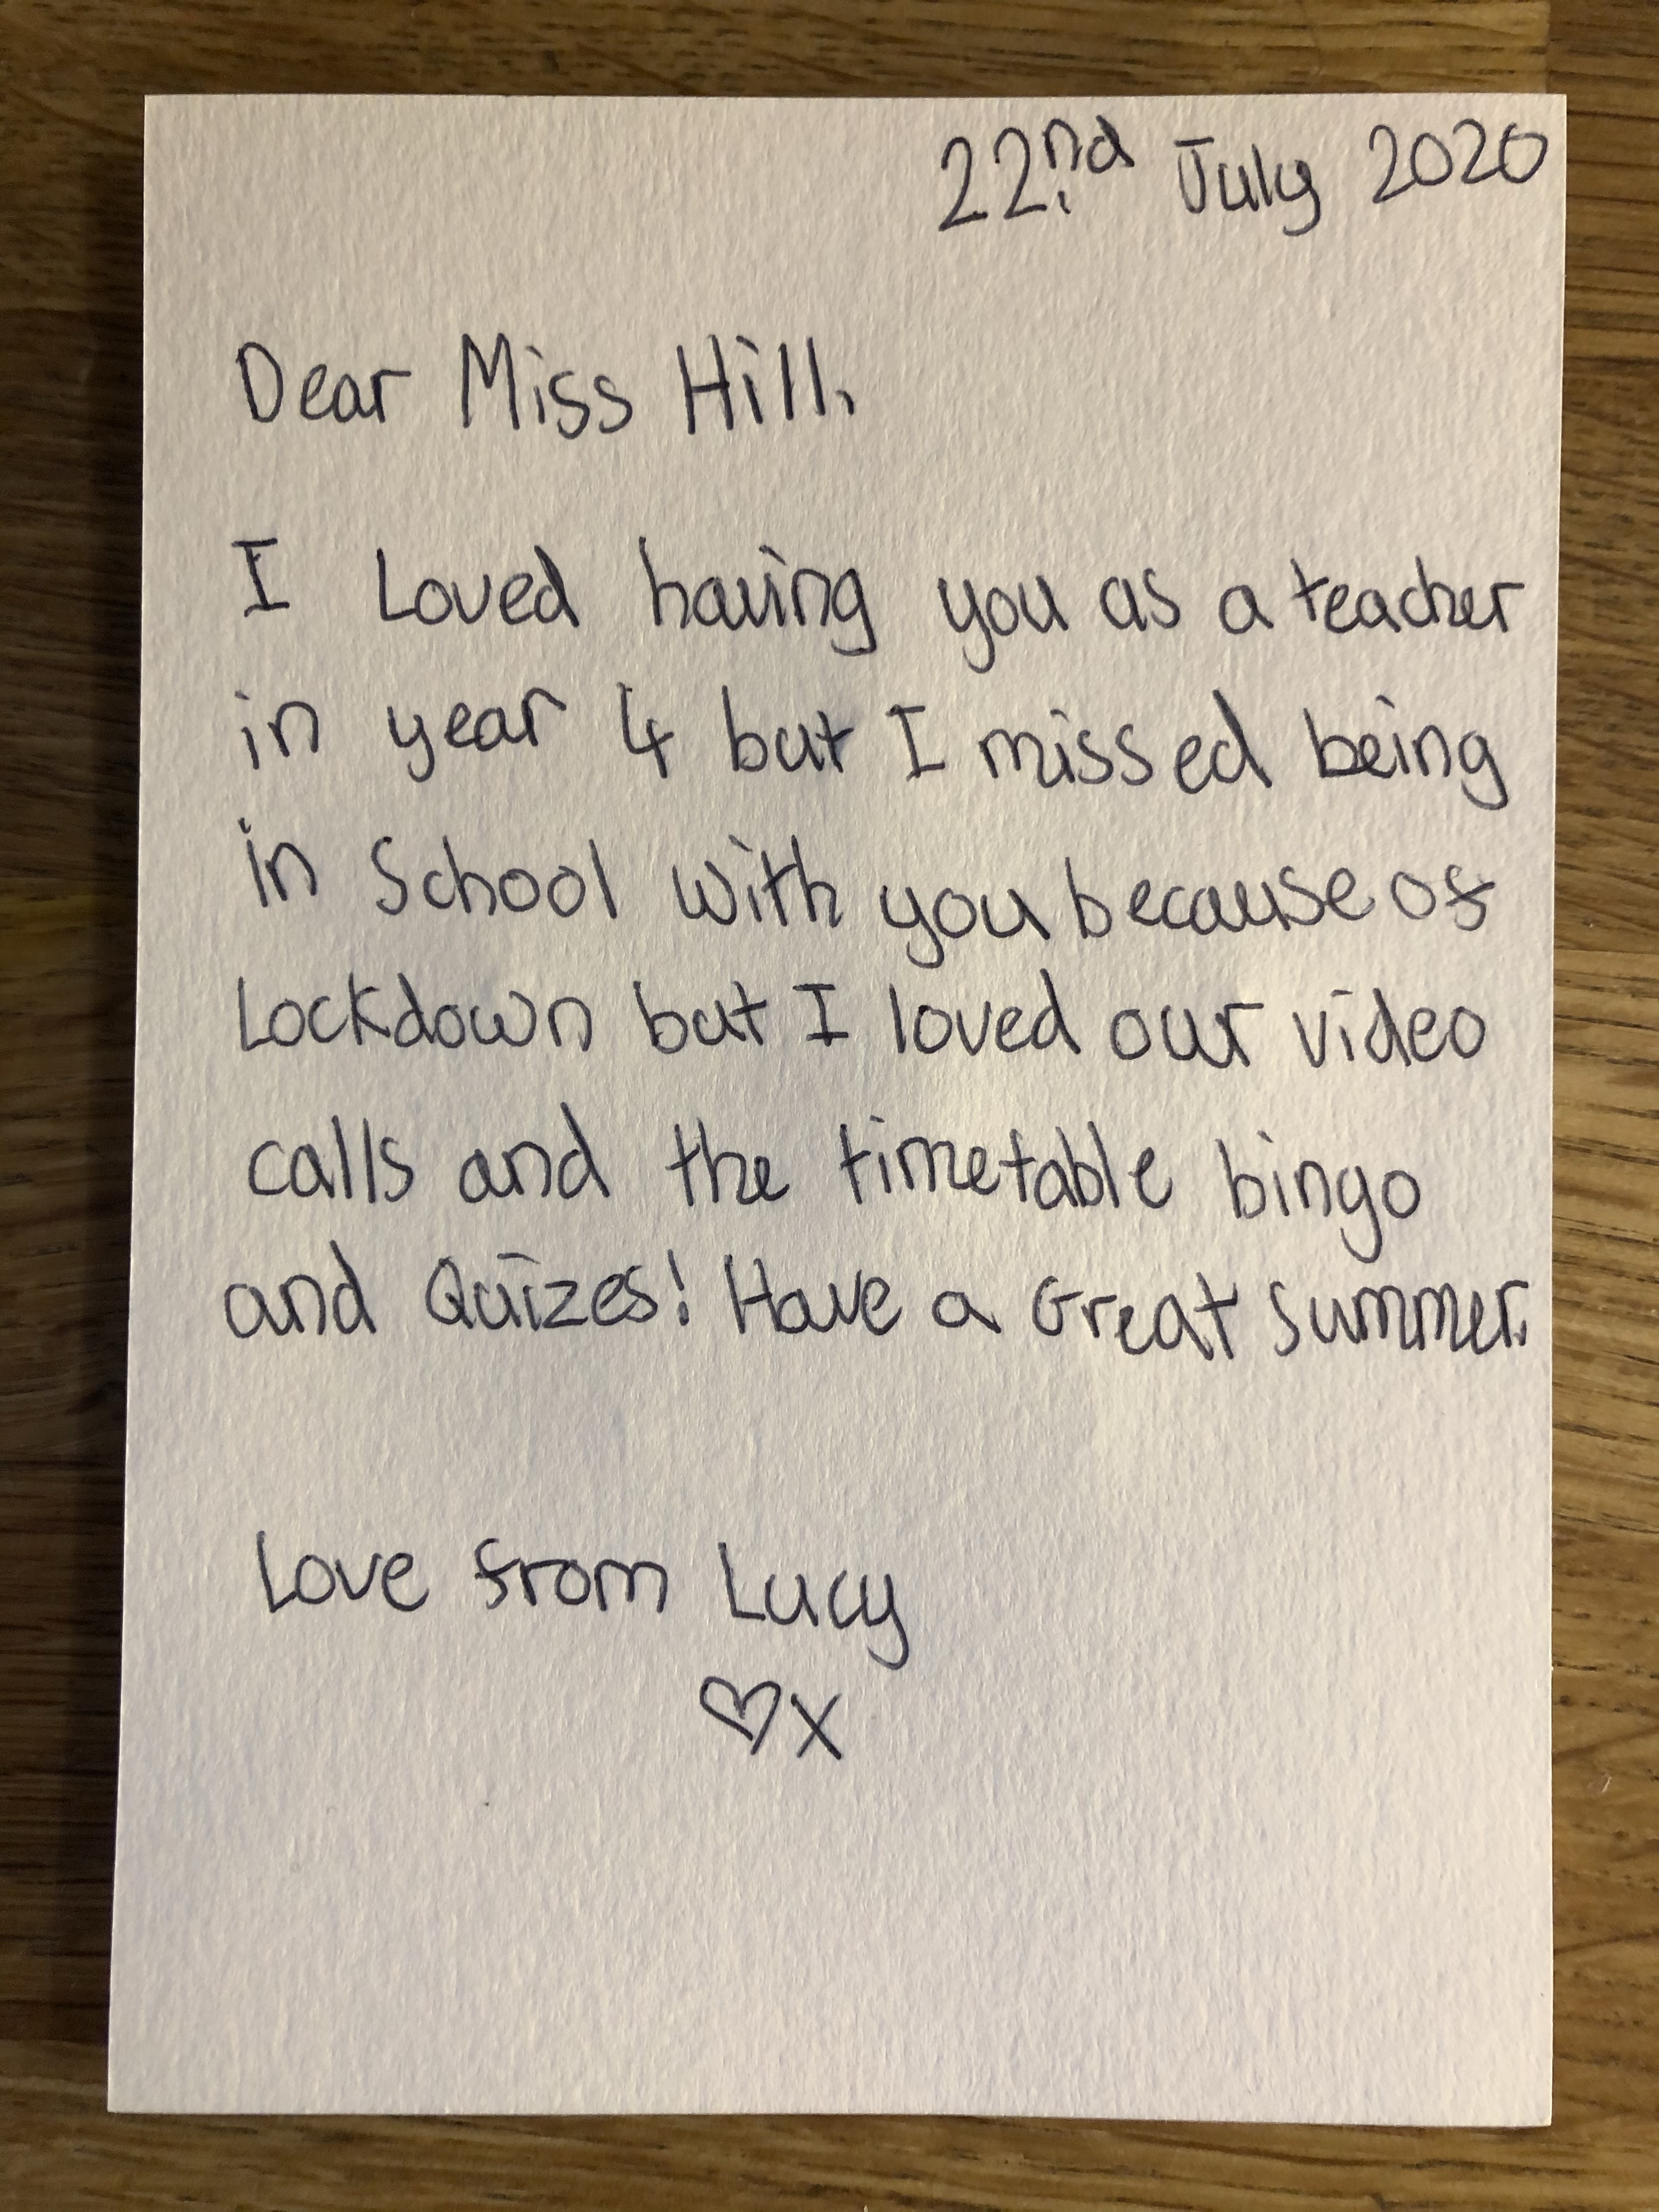 22nd July 2020
Dear Miss Hill,
I Loved having you as a teacher
in year 4 but I missed being
in School with you because of
Lockdown but I loved our video
calls and the timetable bingo
and Quizes! Have a Great summer.
Love from Lucy
♡x